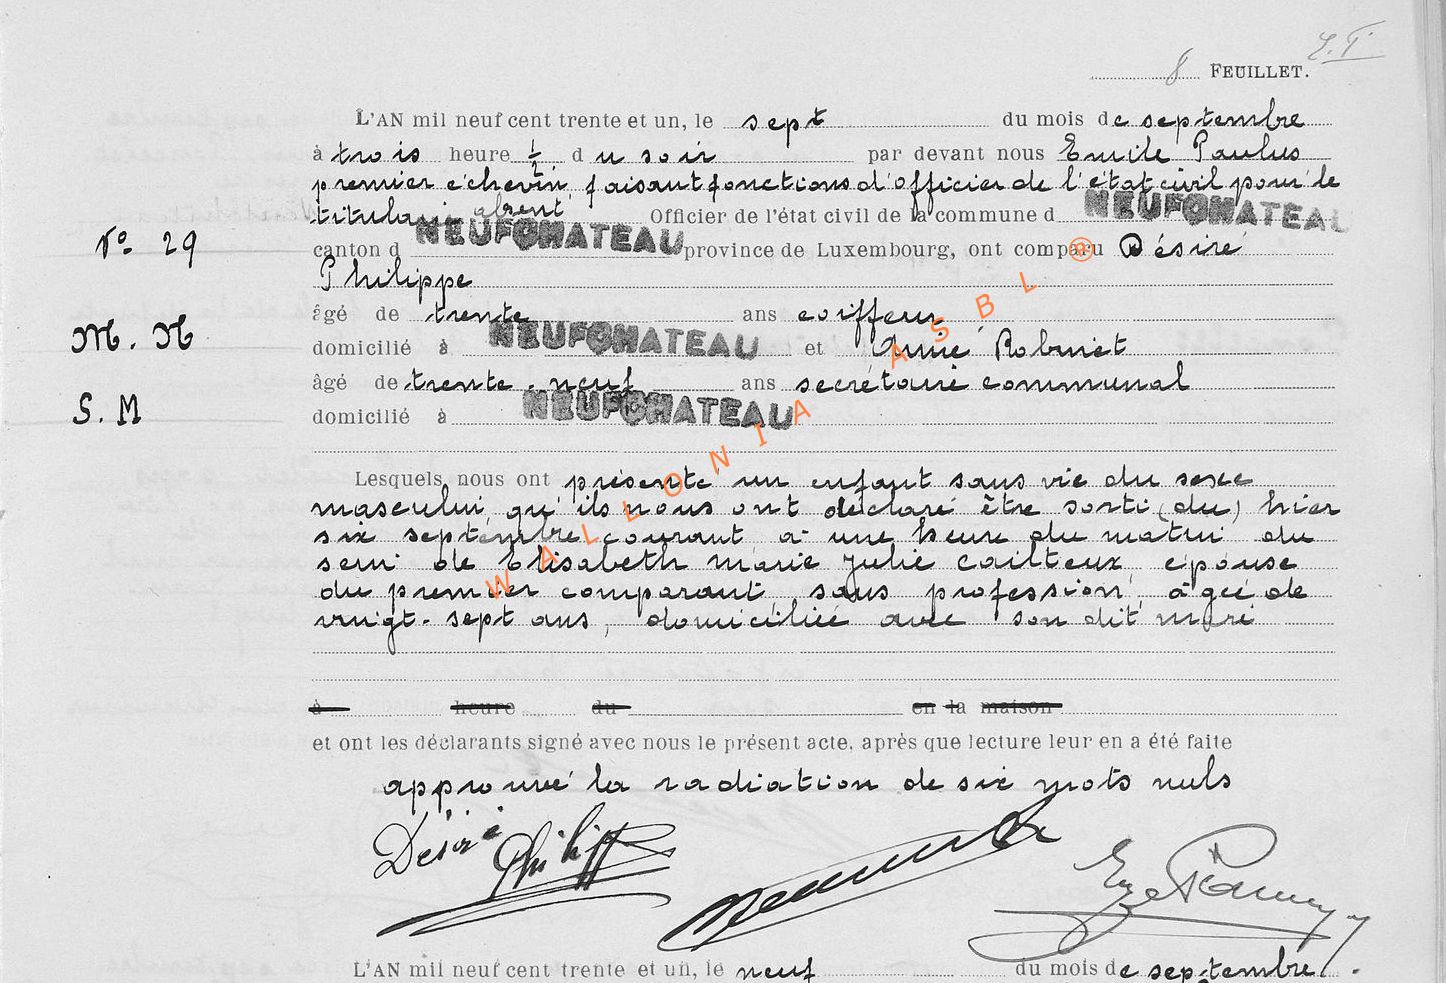 8 FEUILLET.
L'AN mil neuf cent trente et un, le sept du mois de septembre
à trois heure ½ du soir par devant nous Emile Paulus
premier échevin, faisant fonctions d'officier de l'état civil pour le
titulaire absent Officier de l'état civil de la commune d NEUFCHATEAU
N° 29
canton d NEUFCHATEAU province de Luxembourg, ont comparu Désiré
Philippe
âgé de trente ans coiffeur
M. N
domicilié à NEUFCHATEAU et Aimé Robinet
âgé de trente-neuf ans secrétaire communal
S. M
domicilié à NEUFCHATEAU
Lesquels nous ont présenté un enfant sans vie du sexe
masculin, qu'ils nous ont déclaré être sorti (du) hier
six septembre courant à une heure du matin du
sein de Elisabeth Marie Julie Cailteux épouse
du premier comparant, sans profession, âgée de
vingt-sept ans, domiciliée avec son dit mari
à heure du en la maison
et ont les déclarants signé avec nous le présent acte, après que lecture leur en a été faite
approuvé la radiation de six mots nuls
Désiré Philippe
L'AN mil neuf cent trente et un, le neuf du mois de septembre
WALLONIA ASBL ®